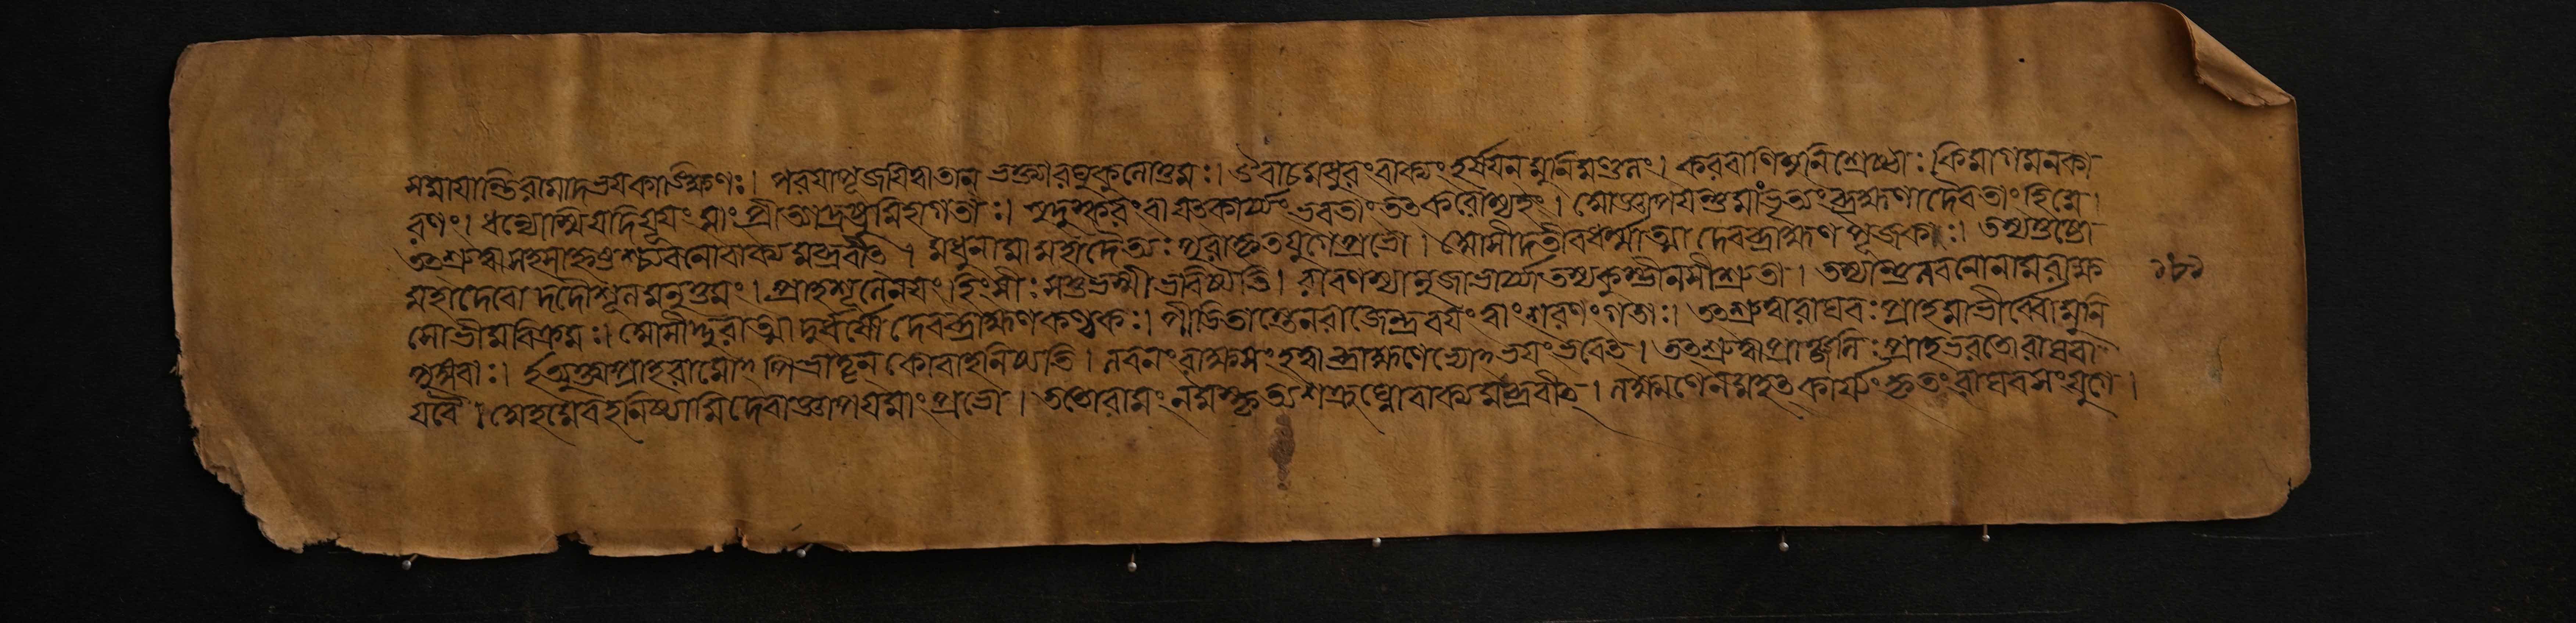 সমাযান্তিরামাদভযকাঙ্ক্ষিণঃ। পরযাপূজযিত্বাতান্ ভক্ত্যারঘুকুলোত্তমঃ। উবাচমধুরংবাক্যং হর্ষযনমুনিমণ্ডলং। করবাণিমুনিশ্রেষ্ঠাঃ কিমাগমনকা
রণং। ধন্যোস্মিযদিযূযং মাং প্রীত্যাদ্রষ্টুমিহাগতাঃ। সুদুষ্করংবা যৎকার্য্যং ভবতাং তৎকরোম্যহং। মোজ্ঞাপযন্তুমাংভৃত্যংব্রাহ্মণাদৈবতাংহিমে।
তৎশ্রুত্বাসহসাহৃষ্টশ্চ্যবনোবাক্যমব্রবীৎ। মধুনামামহাদৈত্যঃ পুরাকৃতযুগেপ্রভো। মোসীদতীবধর্ম্মাত্মা দেবব্রাহ্মণপূজকঃ। তস্যতুষ্টো
মহাদেবো দদৌশূলমনুত্তমং। প্রাহশূলেনযংহিংসীঃ সতুভস্মীভবিষ্যতি। রাবণস্যানুজাভার্য্যাতস্যকুম্ভীনসীশ্রুতা। তস্যান্তুলবনোনামরাক্ষ
সোভীমবিক্রমঃ। মোসীদ্দুরাত্মা দুর্ধর্ষো দেবব্রাহ্মণকণ্টকঃ। পীডিতাস্তেনরাজেন্দ্রবযংত্বাংশরণংগতাঃ। তৎশ্রুত্বারাঘবঃপ্রাহমাভীর্ব্বোমুনি
পুঙ্গবাঃ। ইত্যুক্ত্বাপ্রাহরামোপি ভ্রাতৄন্ কোবাহনিষ্যতি। লবনংরাক্ষসংহত্বা ব্রাহ্মণেভ্যোভযংভবেৎ। তৎশ্রুত্বাপ্রাঞ্জলিঃপ্রাহভরতোরাঘবা
যবৈ। মেহমেবহনিষ্যামিদেবাজ্ঞাপযমাংপ্রভো। ততোরামংনমস্কৃত্যশত্রুঘ্নোবাক্যমব্রবীৎ। লক্ষ্মণেনমহৎকার্য্যংকৃতংরাঘবসংযুগে।
১৮১